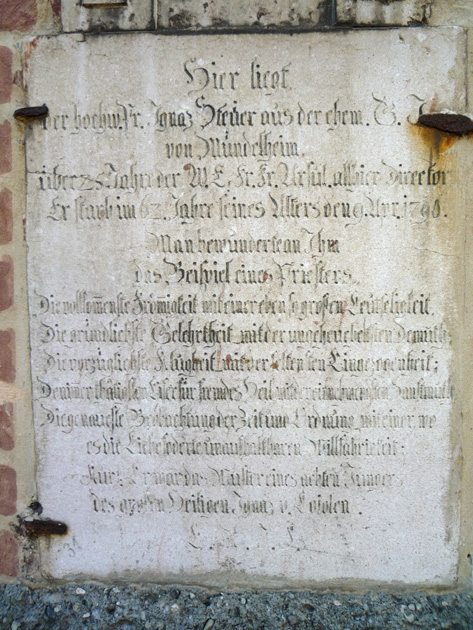 Hier liegt
der hochw. Fr. Ignaz Steuer aus der ehem. G. J.
von Mündelheim.
über 25 Jahr der W. E. Fr. Fr. Ursul. allhier Director
Er starb im 62. Jahre seines Alters den 9. Apr. 1790.
Man bewunderte an Ihm
das Beispiel eines Priesters.
Die vollkom̅enste Fromigkeit mit einer eben so großen Leutseligkeit,
Die gründlichste Gelehrtheit mit der ungeheucheltsten Demuth
die vorzüglichste Klugheit mit der seltensten Eingezogenheit;
Den Eifer für fremdes Heil mit der Sanftmuth
Die genaueste Beobachtung der Zeit und Ordnung mit einer wo
es die Liebe foderte unaufhaltbaren Willfährigkeit.
Kurz: Er war das Muster eines ächten Jüngers
des großen Heiligen Ignaz v. Lojolen.